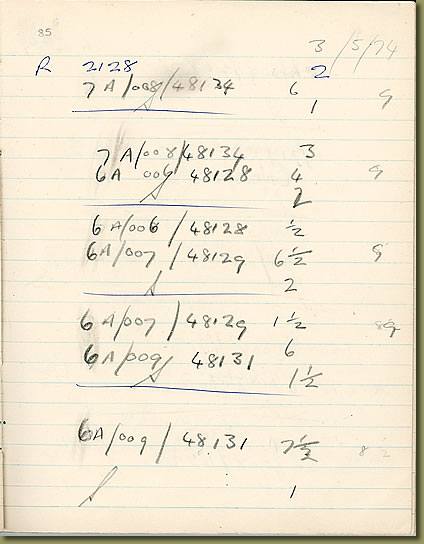 85
3/5/74
R 2128 2
7A/008/48134 6
S 1 9
7A/008/48134 3
6A 006 48128 4 9
S 2
6A/006/48128 ½
6A/007/48129 6½ 9
S 2
6A/007/48129 1½ 89
6A/009/48131 6
S 1½
6A/009/48131 7½ 8½
S 1